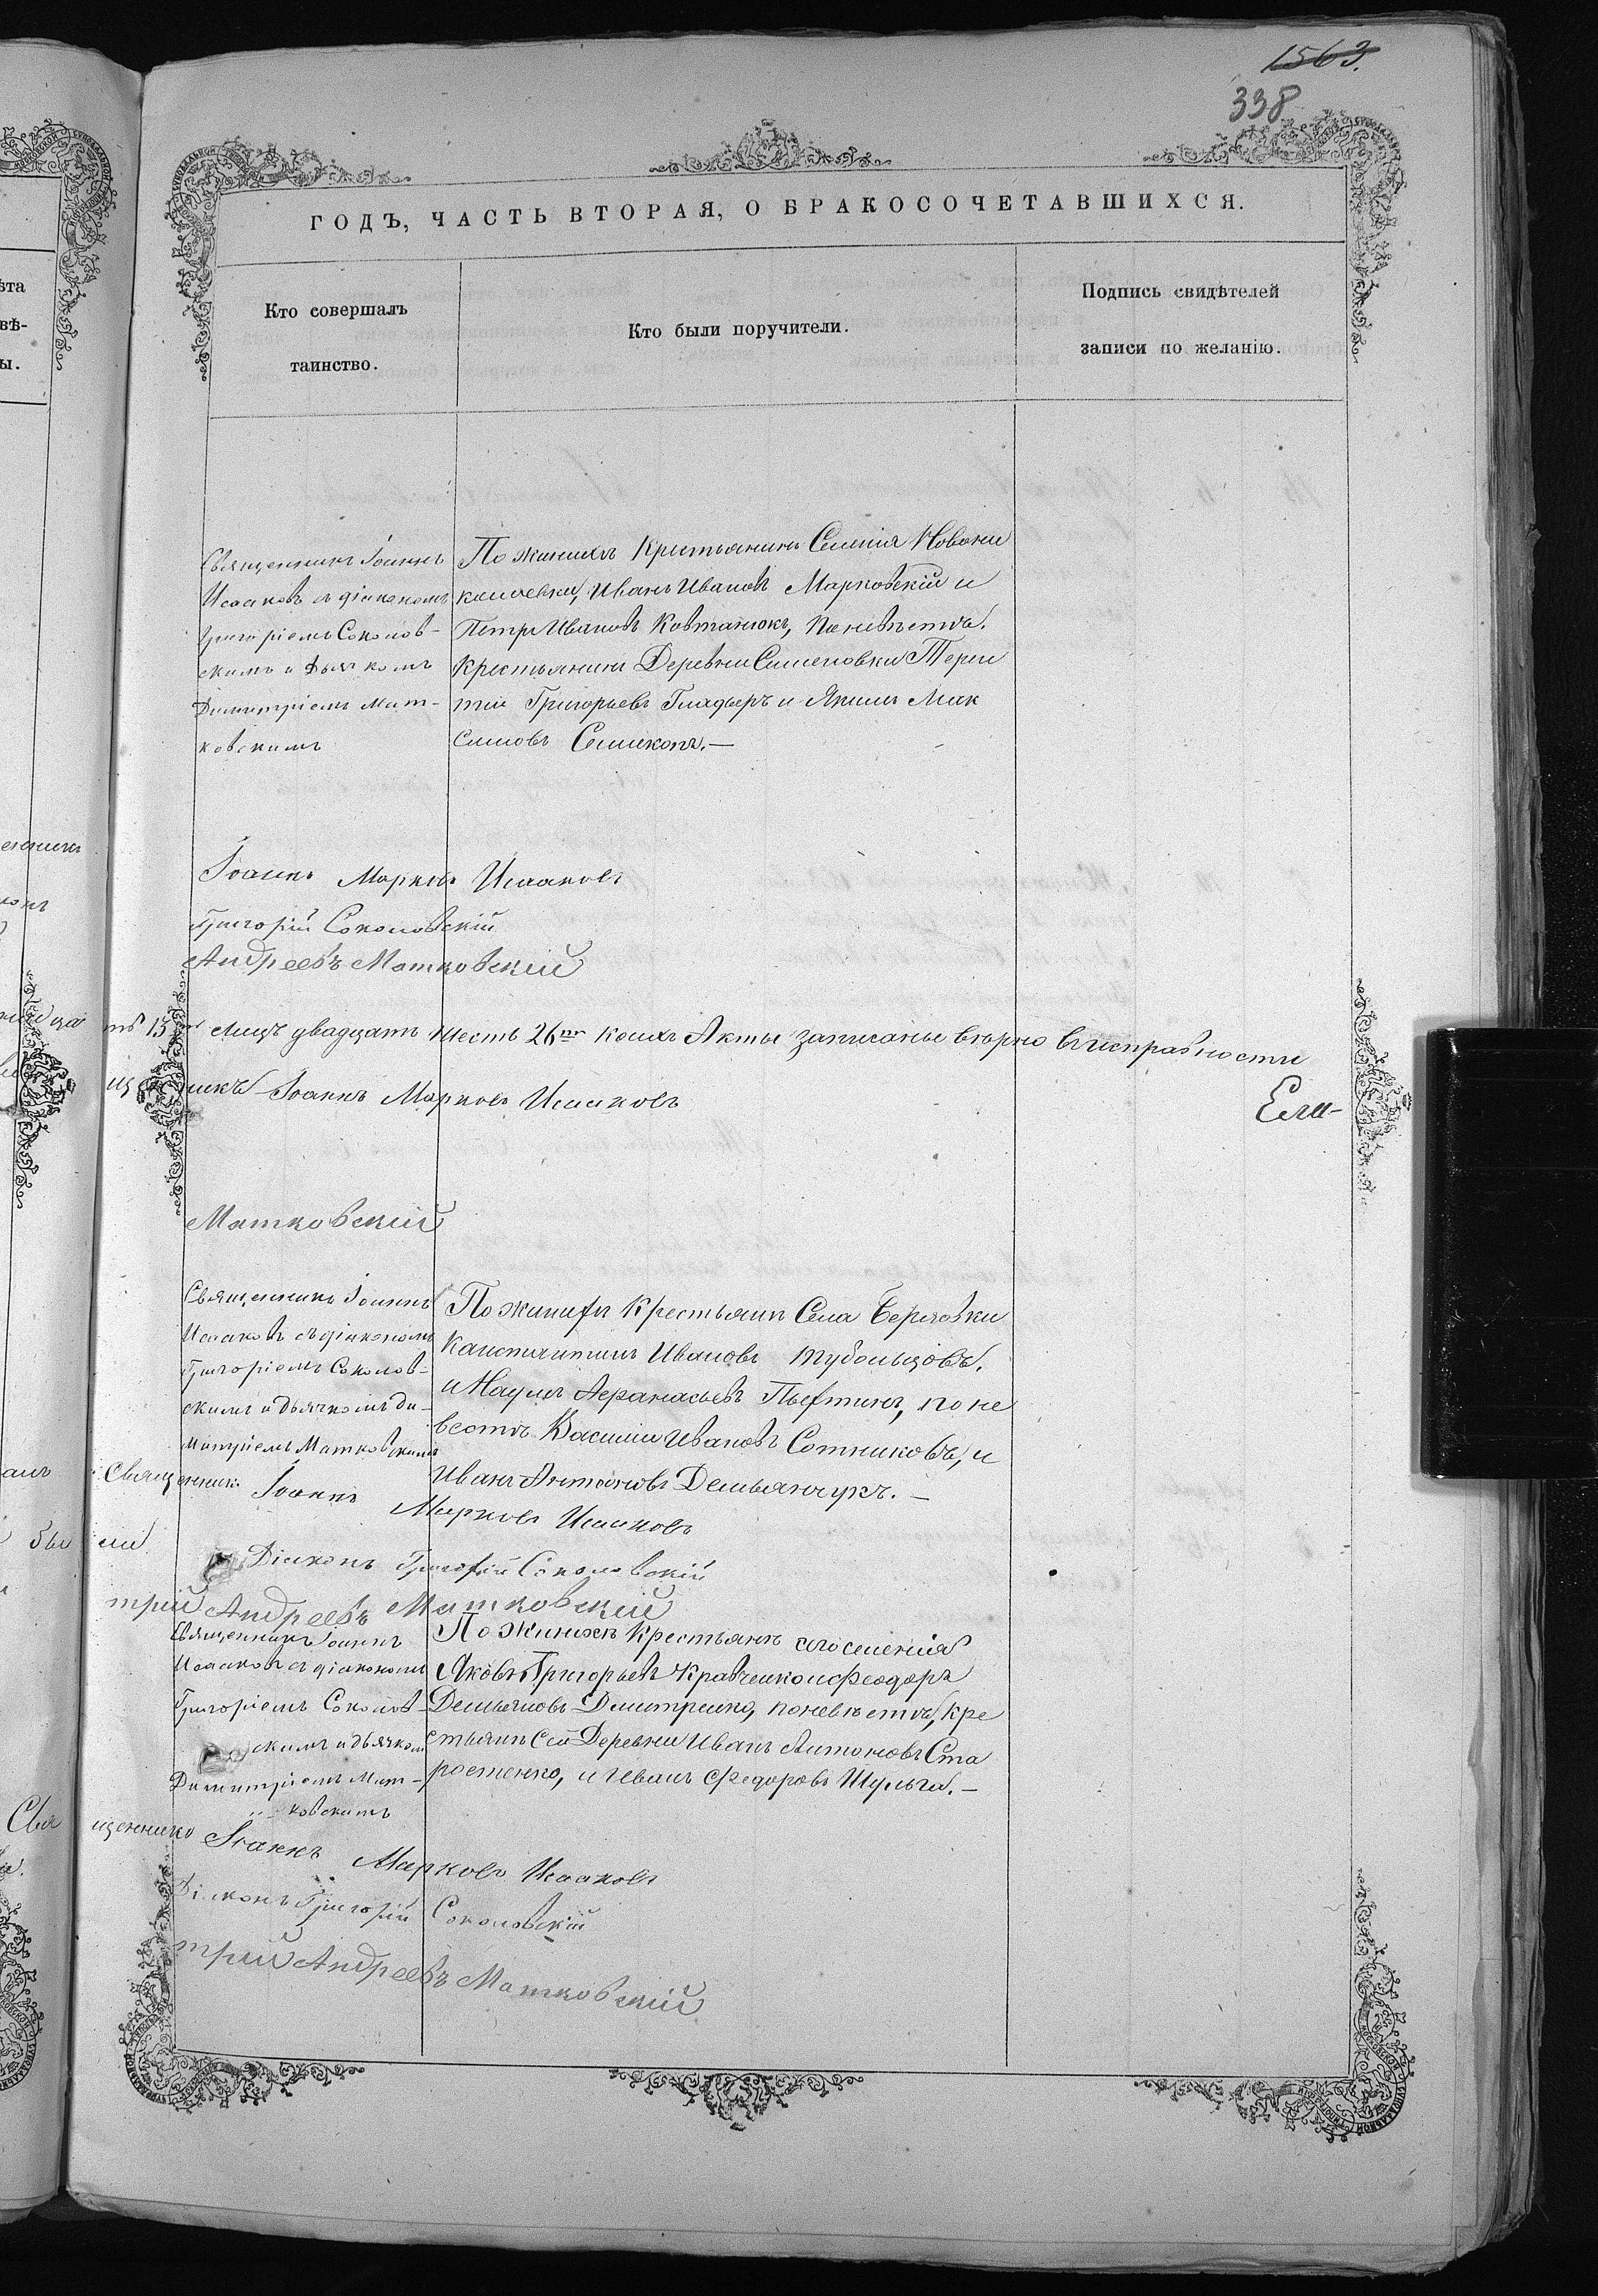 1563.
338
ГОДЪ, ЧАСТЬ ВТОРАЯ, О БРАКОСОЧЕТАВШИХСЯ.
Кто совершалъ
таинство.
Кто были поручители.
Подпись свидѣтелей
записи по желанію.
Священникъ Іоаннъ
Исааковъ съ діакономъ
Григоріемъ Соколов-
скимъ и Дьячкомъ
Димитріемъ Мат-
ковскимъ
По женихѣ Крестьянинъ Селенія
Иванъ Ивановъ Марковскій и
Петръ Ивановъ Ковтанюкъ, по невѣстѣ
крестьянинъ Деревни Семеновки Терен
тій Григорьевъ Гладыръ и Якимъ Мак
симовъ
Іоаннъ Марковъ Исааковъ
Григорій Соколовскій
Андреевъ Матковскій
ть 13 лицъ двадцать шесть 26 коихъ Акты записаны вѣрно въ исправности
щенникъ Іоаннъ Марковъ Исааковъ
Ели-
Матковскій
Священникъ Іоаннъ
Исааковъ съ діакономъ
Григоріемъ Соколов-
скимъ и дьячкомъ Ди-
митріемъ Матковскимъ
По женихѣ Крестьянъ Села
Константинъ Ивановъ
и Наумъ Афанасьевъ по не
вестѣ Василій Ивановъ Сотниковъ, и
Иванъ Антоновъ Демьянчукъ.—
Священникъ Іоаннъ Марковъ Исааковъ
Діаконъ Григорій Соколовскій
трій Андреевъ Матковскій
Священникъ Іоаннъ
Исааковъ съ діакономъ
Григоріемъ Соколов-
скимъ и дьячкомъ
Димитріемъ Мат-
ковскимъ
По женихѣ Крестьянъ сего селенія
Яковъ Григорьевъ Кравченко и Феодоръ
Демьяновъ Дмитренко, по невѣстѣ, кре
стьянъ Сей Деревни Иванъ Антоновъ Ста
ростенко, и Иванъ Федоровъ Шульга.—
Священникъ Іоаннъ Марковъ Исааковъ
Діаконъ Григорій Соколовскій
трій Андреевъ Матковскій